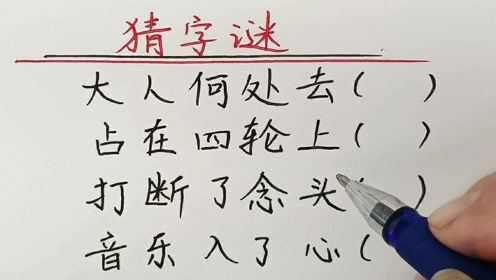 猜字谜
大人何处去( )
占在四轮上( )
打断了念头( )
音乐入了心(